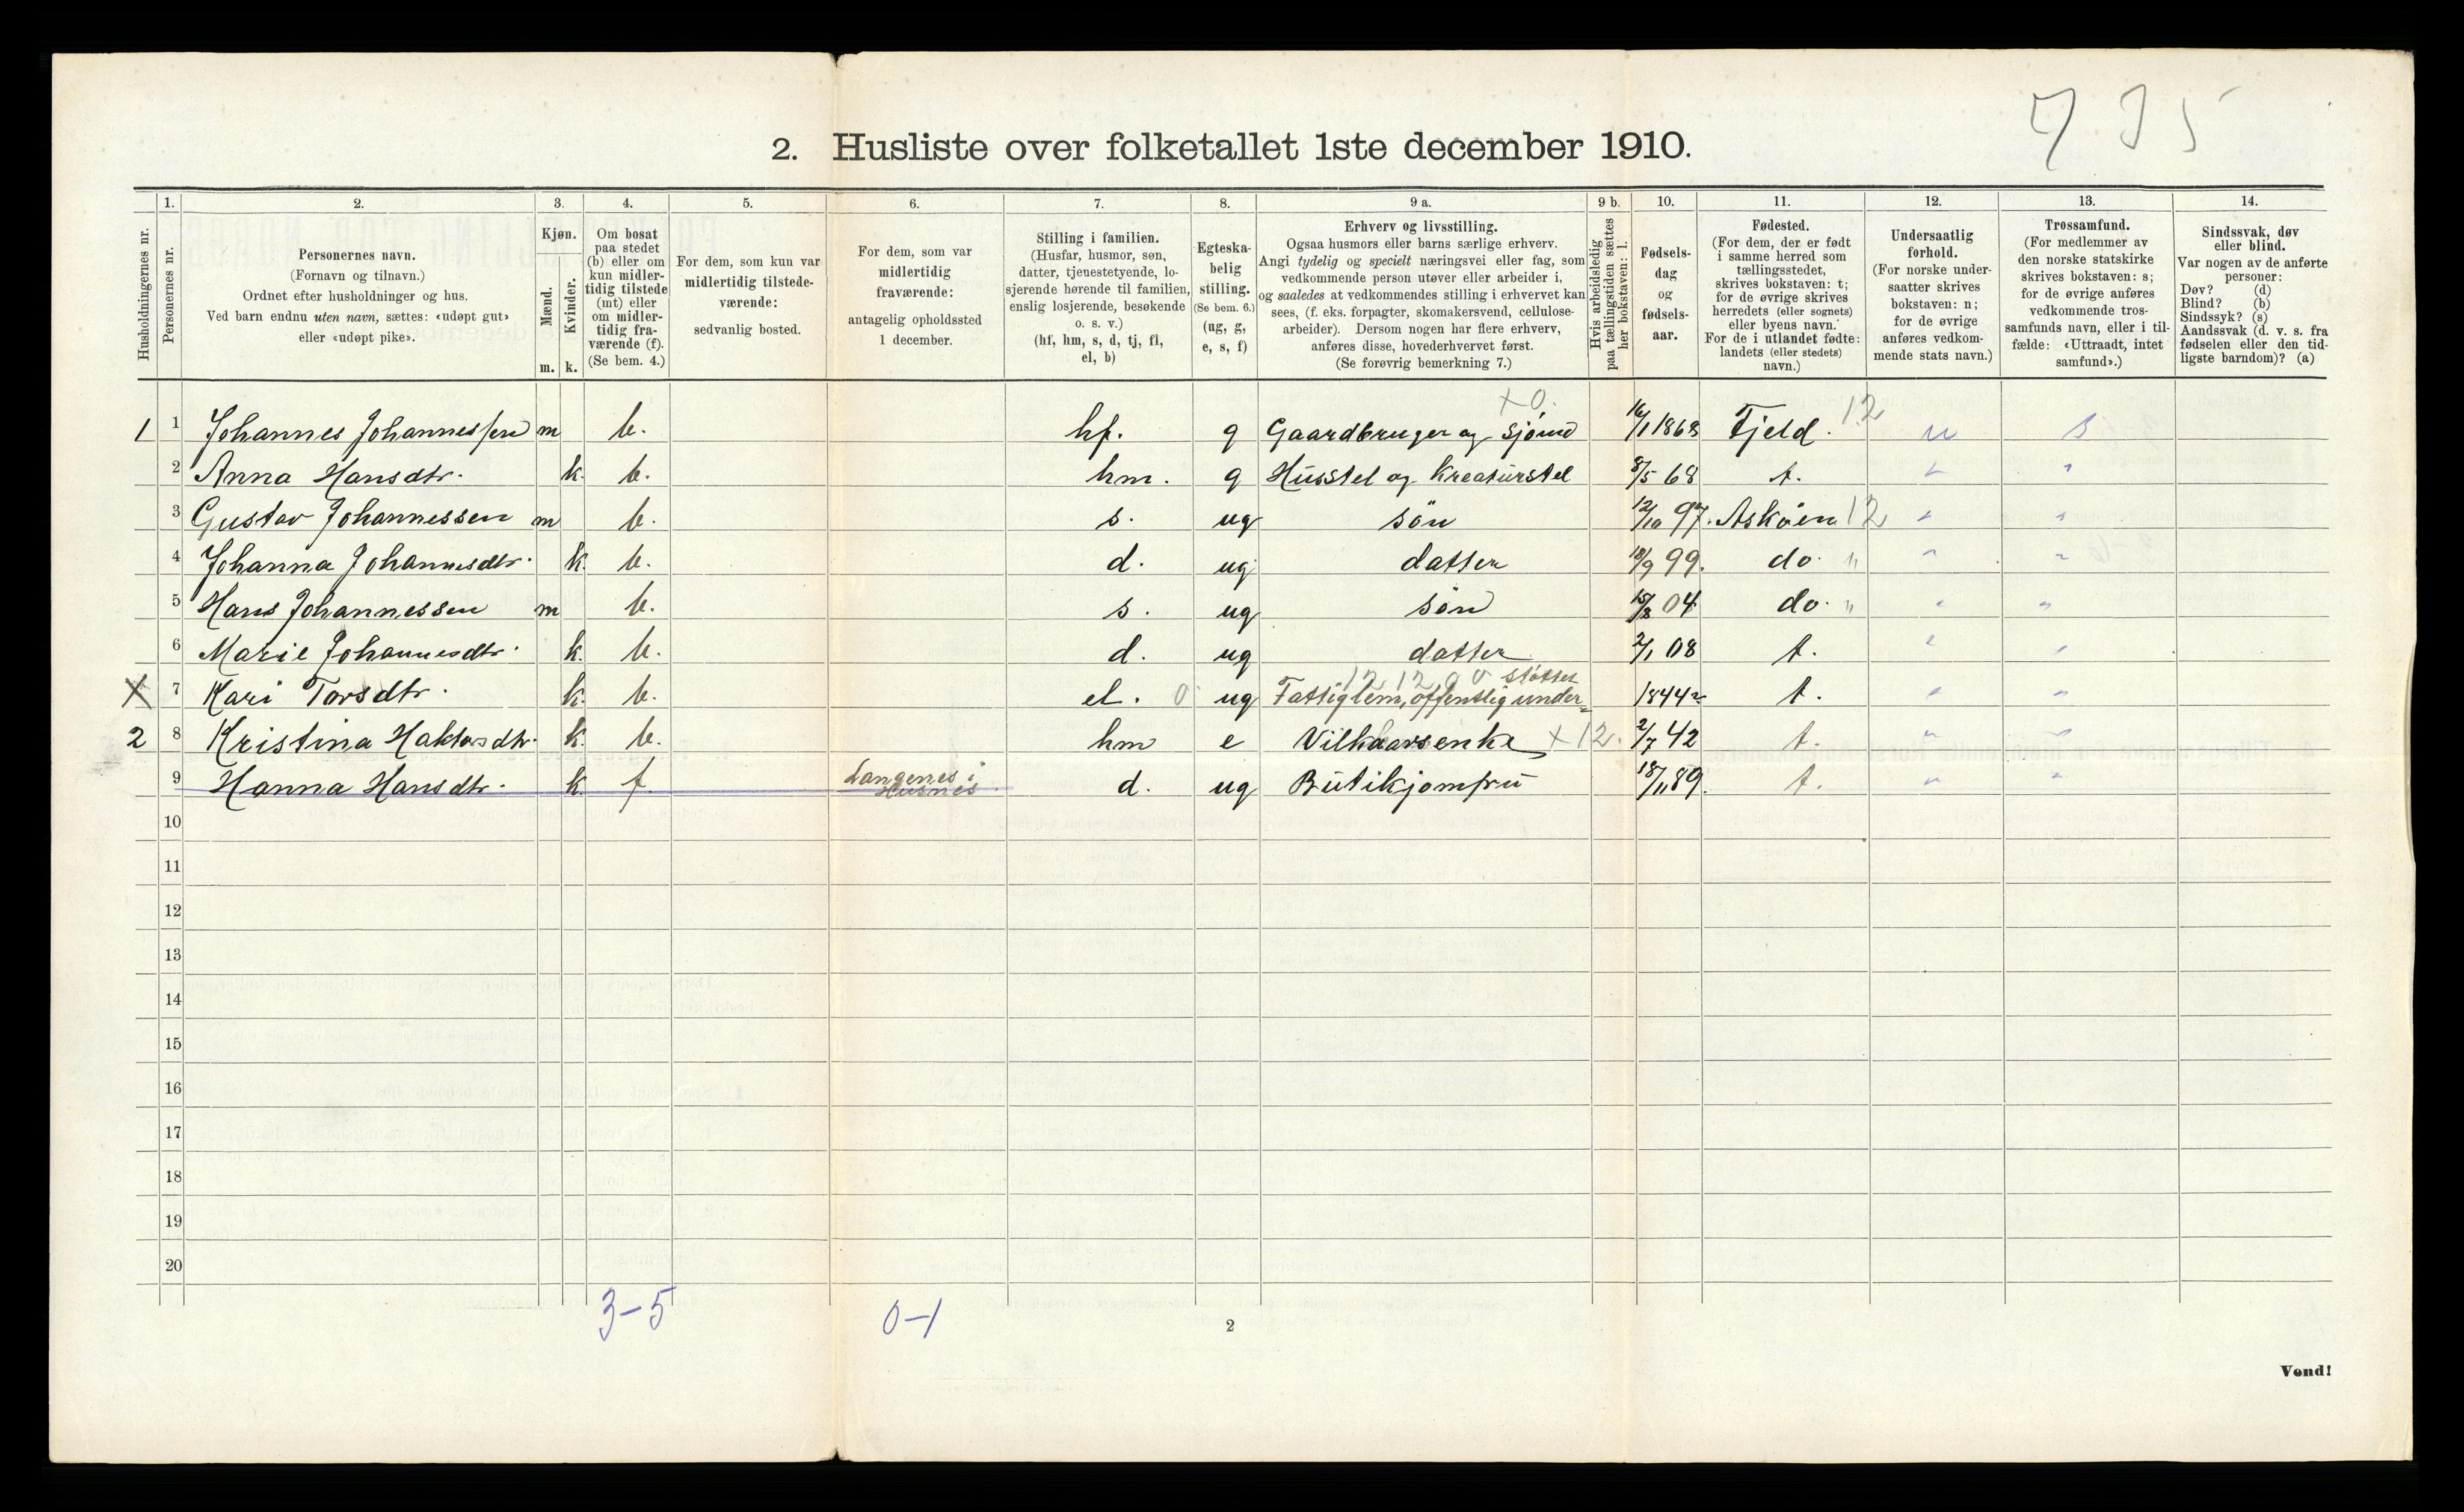 735
2. Husliste over folketallet 1ste december 1910.
Husholdningernes nr.
1.
Personernes nr.
2.
Personernes navn.
(Fornavn og tilnavn.)
Ordnet efter husholdninger og hus.
Ved barn endnu uten navn, sættes: «udøpt gut»
eller «udøpt pike».
3.
Kjøn.
Mænd.
Kvinder.
m. k.
4.
Om bosat
paa stedet
(b) eller om
kun midler-
tidig tilstede
(mt) eller
om midler-
tidig fra-
værende (f).
(Se bem. 4.)
5.
For dem, som kun var
midlertidig tilstede-
værende:
sedvanlig bosted.
6.
For dem, som var
midlertidig
fraværende:
antagelig opholdssted
1 december.
7.
Stilling i familien.
(Husfar, husmor, søn,
datter, tjenestetyende, lo-
sjerende hørende til familien,
enslig losjerende, besøkende
o. s. v.)
(hf, hm, s, d, tj, fl,
el, b)
8.
Egteska-
belig
stilling.
(Se bem. 6.)
(ug, g,
e, s, f)
9 a.
Erhverv og livsstilling.
Ogsaa husmors eller barns særlige erhverv.
Angi tydelig og specielt næringsvei eller fag, som
vedkommende person utøver eller arbeider i,
og saaledes at vedkommendes stilling i erhvervet kan
sees, (f. eks. forpagter, skomakersvend, cellulose-
arbeider). Dersom nogen har flere erhverv,
anføres disse, hovederhvervet først.
(Se forøvrig bemerkning 7.)
9 b.
Hvis arbeidsledig
paa tællingstiden sættes
her bokstaven: l.
10.
Fødsels-
dag
og
fødsels-
aar.
11.
Fødested.
(For dem, der er født
i samme herred som
tællingsstedet,
skrives bokstaven: t;
for de øvrige skrives
herredets (eller sognets)
eller byens navn.
For de i utlandet fødte:
landets (eller stedets)
navn.)
12.
Undersaatlig
forhold.
(For norske under-
saatter skrives
bokstaven: n;
for de øvrige
anføres vedkom-
mende stats navn.)
13.
Trossamfund.
(For medlemmer av
den norske statskirke
skrives bokstaven: s;
for de øvrige anføres
vedkommende tros-
samfunds navn, eller i til-
fælde: «Uttraadt, intet
samfund».)
14.
Sindssvak, døv
eller blind.
Var nogen av de anførte
personer:
Døv? (d)
Blind? (b)
Sindssyk? (s)
Aandssvak (d. v. s. fra
fødselen eller den tid-
ligste barndom)? (a)
+ 0.
1 1 Johannes Johannessen m b. hf. g Gaardbruger og Sjømd 16/1 1868 Fjeld. 12 n s
2 Anna Hansdtr. k. b. hm. g Husstel og Kreaturstel 8/5 68 t. " "
3 Gustav Johannessen m b. s. ug søn 12/10 97. Askøen 12 " "
4 Johanna Johannesdtr. k. b. d. ug datter 18/9 99. do. " " "
5 Hans Johannessen m b. s. ug søn 15/8 04 do. " " "
6 Marie Johannesdtr. k. b. d. ug datter 2/1 08 t. " "
12 12 0 0 støttet
X 7 Kari Torsdtr. k. b. el. 0 ug Fattiglem, offentlig under= 1844 t. " "
2 8 Kristina Haktorsdtr. k. b. hm e Vilkaarsenke +12. 2/7 42 t. " "
Langenes i
9 Hanna Hansdtr. k. f Husnes d. ug Butikjomfru 18/11 89. t. " "
10
11
12
13
14
15
16
17
18
19
20
3-5 0-1
2
Vend!